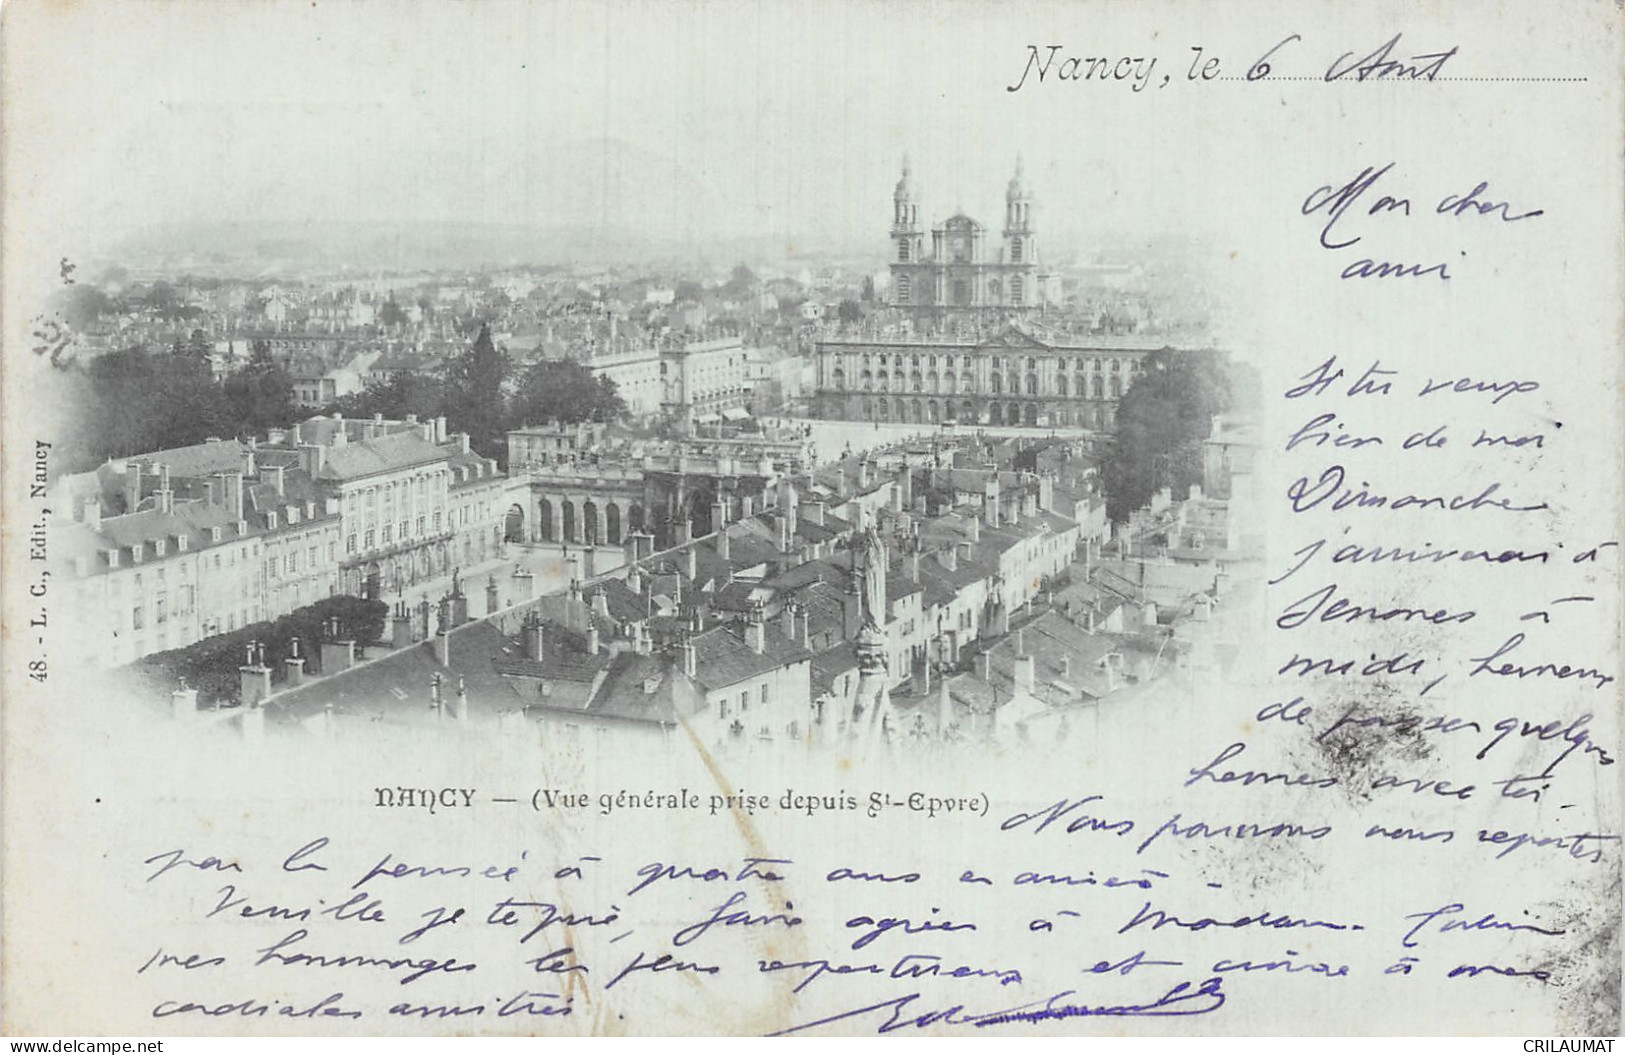 Nancy, le 6 Août
Mon cher
ami
Si tu veux
bien de moi
Dimanche
j'arriverai à
Senones à
midi, heureux
de passer quelques
heures avec toi.
NANCY — (Vue générale prise depuis St-Epvre)
Nous pourrons nous reporter
par la pensée à quatre ans en arrière.
Veuille je te prie, faire agréer à Madame
mes hommages les plus respectueux et croire à mes
cordiales amitiés.
48. - L. C., Edit., Nancy
www.delcampe.net
CRILAUMAT